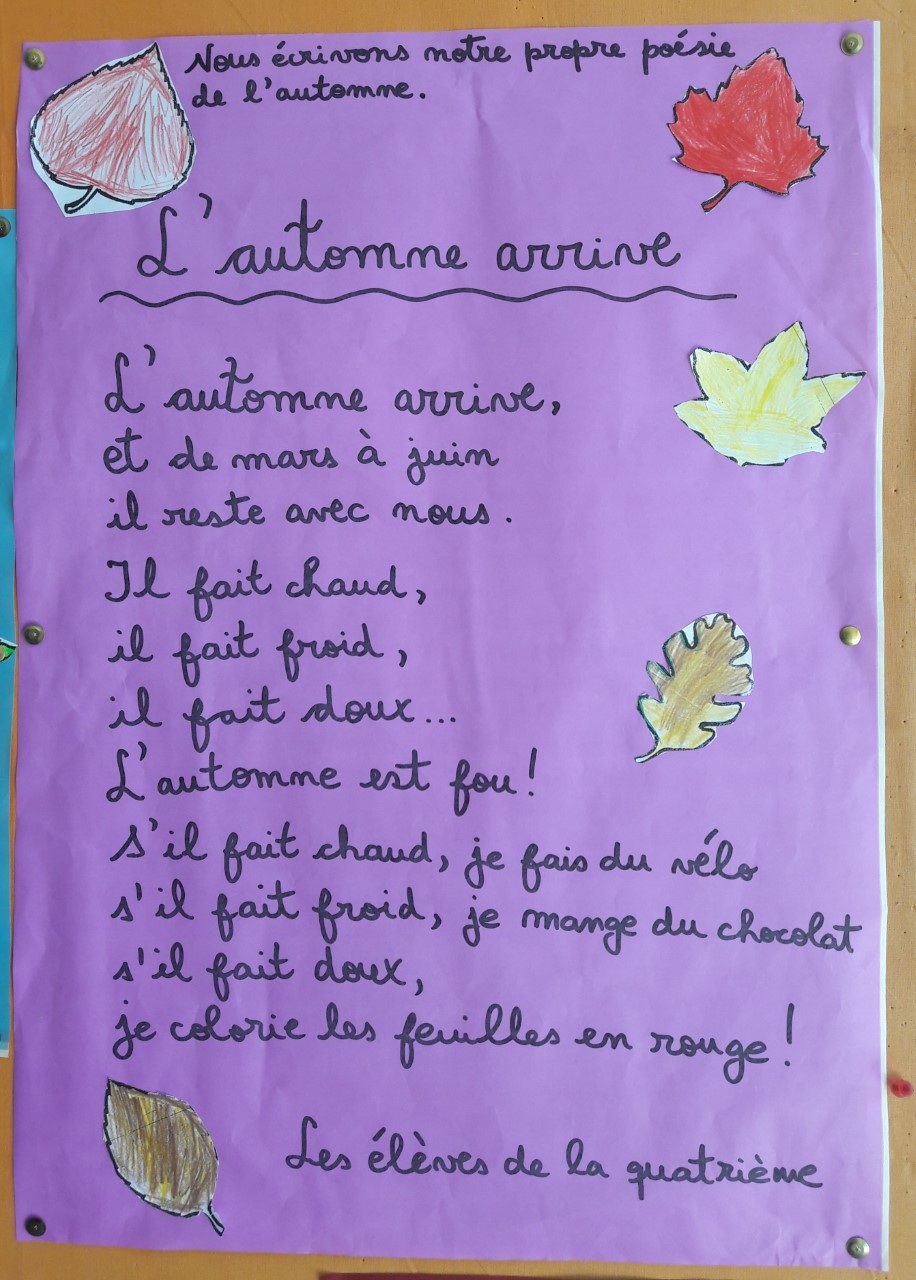 Nous écrivons notre propre poésie
de l'automne.
L'automne arrive
L'automne arrive,
et de mars à juin
il reste avec nous.
Il fait chaud,
il fait froid,
il fait doux...
L'automne est fou!
S'il fait chaud, je fais du vélo
s'il fait froid, je mange du chocolat
s'il fait doux,
je colorie les feuilles en rouge!
Les élèves de la quatrième